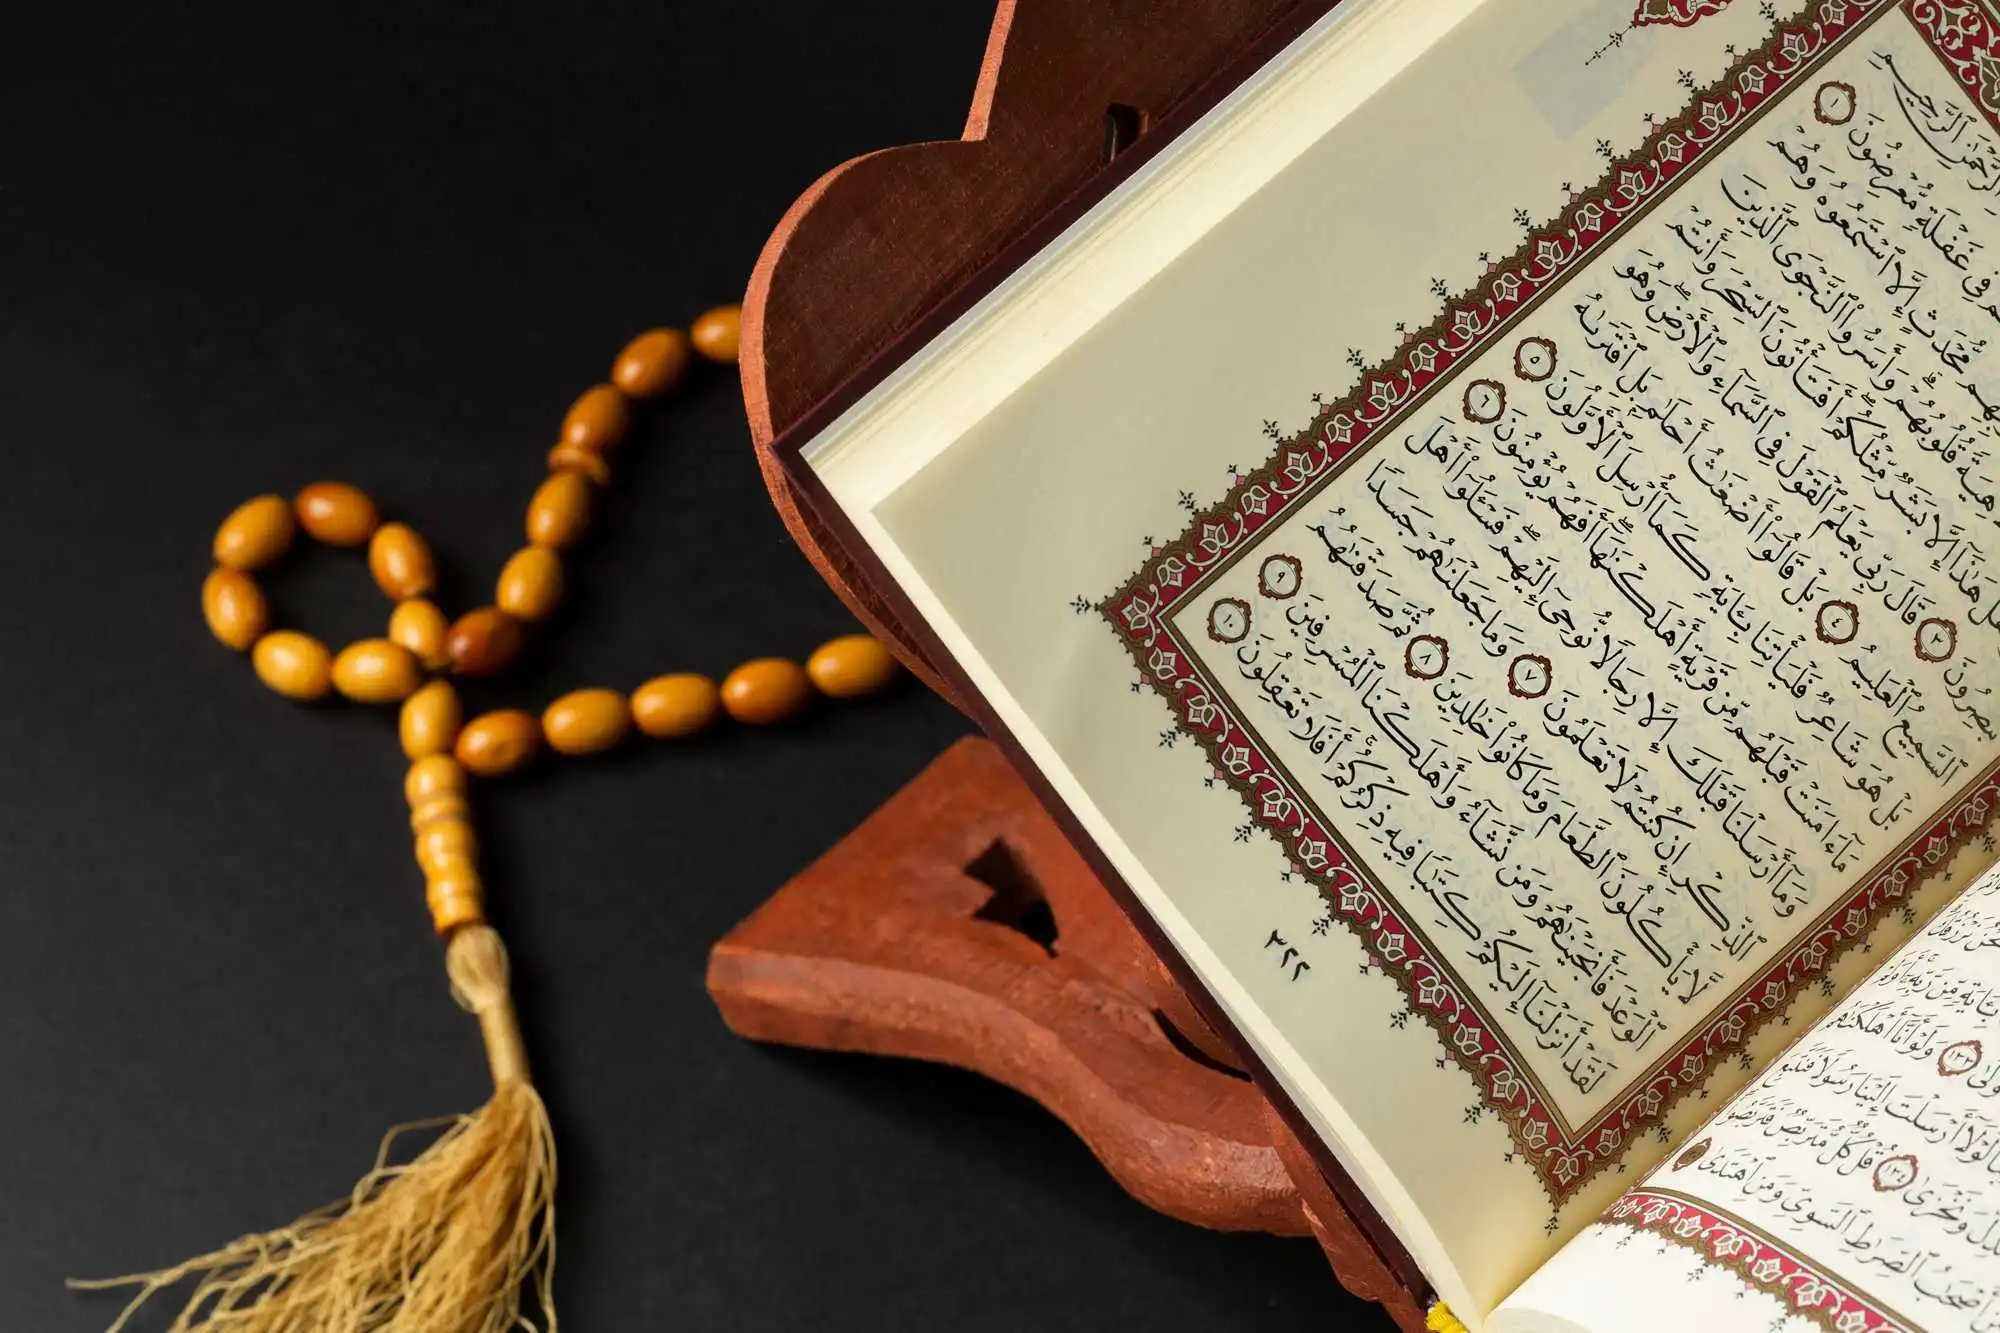 ٱلرَّحْمَٰنِ ٱلرَّحِيمِ
فِى غَفْلَةٍ مُّعْرِضُونَ ١
مُّحْدَثٍ إِلَّا ٱسْتَمَعُوهُ وَهُمْ
قُلُوبُهُمْ وَأَسَرُّوا۟ ٱلنَّجْوَى ٱلَّذِينَ
هَٰذَآ إِلَّا بَشَرٌ مِّثْلُكُمْ أَفَتَأْتُونَ ٱلسِّحْرَ وَأَنتُمْ
٣ قَالَ رَبِّى يَعْلَمُ ٱلْقَوْلَ فِى ٱلسَّمَآءِ وَٱلْأَرْضِ وَهُوَ
ٱلسَّمِيعُ ٱلْعَلِيمُ ٤ بَلْ قَالُوٓا۟ أَضْغَٰثُ أَحْلَٰمٍۭ بَلِ ٱفْتَرَىٰهُ
بَلْ هُوَ شَاعِرٌ فَلْيَأْتِنَا بِـَٔايَةٍ كَمَآ أُرْسِلَ ٱلْأَوَّلُونَ ٥
مَآ ءَامَنَتْ قَبْلَهُم مِّن قَرْيَةٍ أَهْلَكْنَٰهَآ أَفَهُمْ يُؤْمِنُونَ ٦
وَمَآ أَرْسَلْنَا قَبْلَكَ إِلَّا رِجَالًا نُّوحِىٓ إِلَيْهِمْ فَسْـَٔلُوٓا۟ أَهْلَ
ٱلذِّكْرِ إِن كُنتُمْ لَا تَعْلَمُونَ ٧ وَمَا جَعَلْنَٰهُمْ جَسَدًا
لَّا يَأْكُلُونَ ٱلطَّعَامَ وَمَا كَانُوا۟ خَٰلِدِينَ ٨ ثُمَّ صَدَقْنَٰهُمُ
ٱلْوَعْدَ فَأَنجَيْنَٰهُمْ وَمَن نَّشَآءُ وَأَهْلَكْنَا ٱلْمُسْرِفِينَ ٩
لَقَدْ أَنزَلْنَآ إِلَيْكُمْ كِتَٰبًا فِيهِ ذِكْرُكُمْ أَفَلَا تَعْقِلُونَ ١٠
٣٢٢
بِـَٔايَةٍ مِّن رَّبِّهِۦٓ أَوَلَمْ
١٣٣ وَلَوْ أَنَّآ أَهْلَكْنَٰهُم
لَوْلَآ أَرْسَلْتَ إِلَيْنَا رَسُولًا فَنَتَّبِعَ
وَنَخْزَىٰ ١٣٤ قُلْ كُلٌّ مُّتَرَبِّصٌ فَتَرَبَّصُوا۟
أَصْحَٰبُ ٱلصِّرَٰطِ ٱلسَّوِىِّ وَمَنِ ٱهْتَدَىٰ